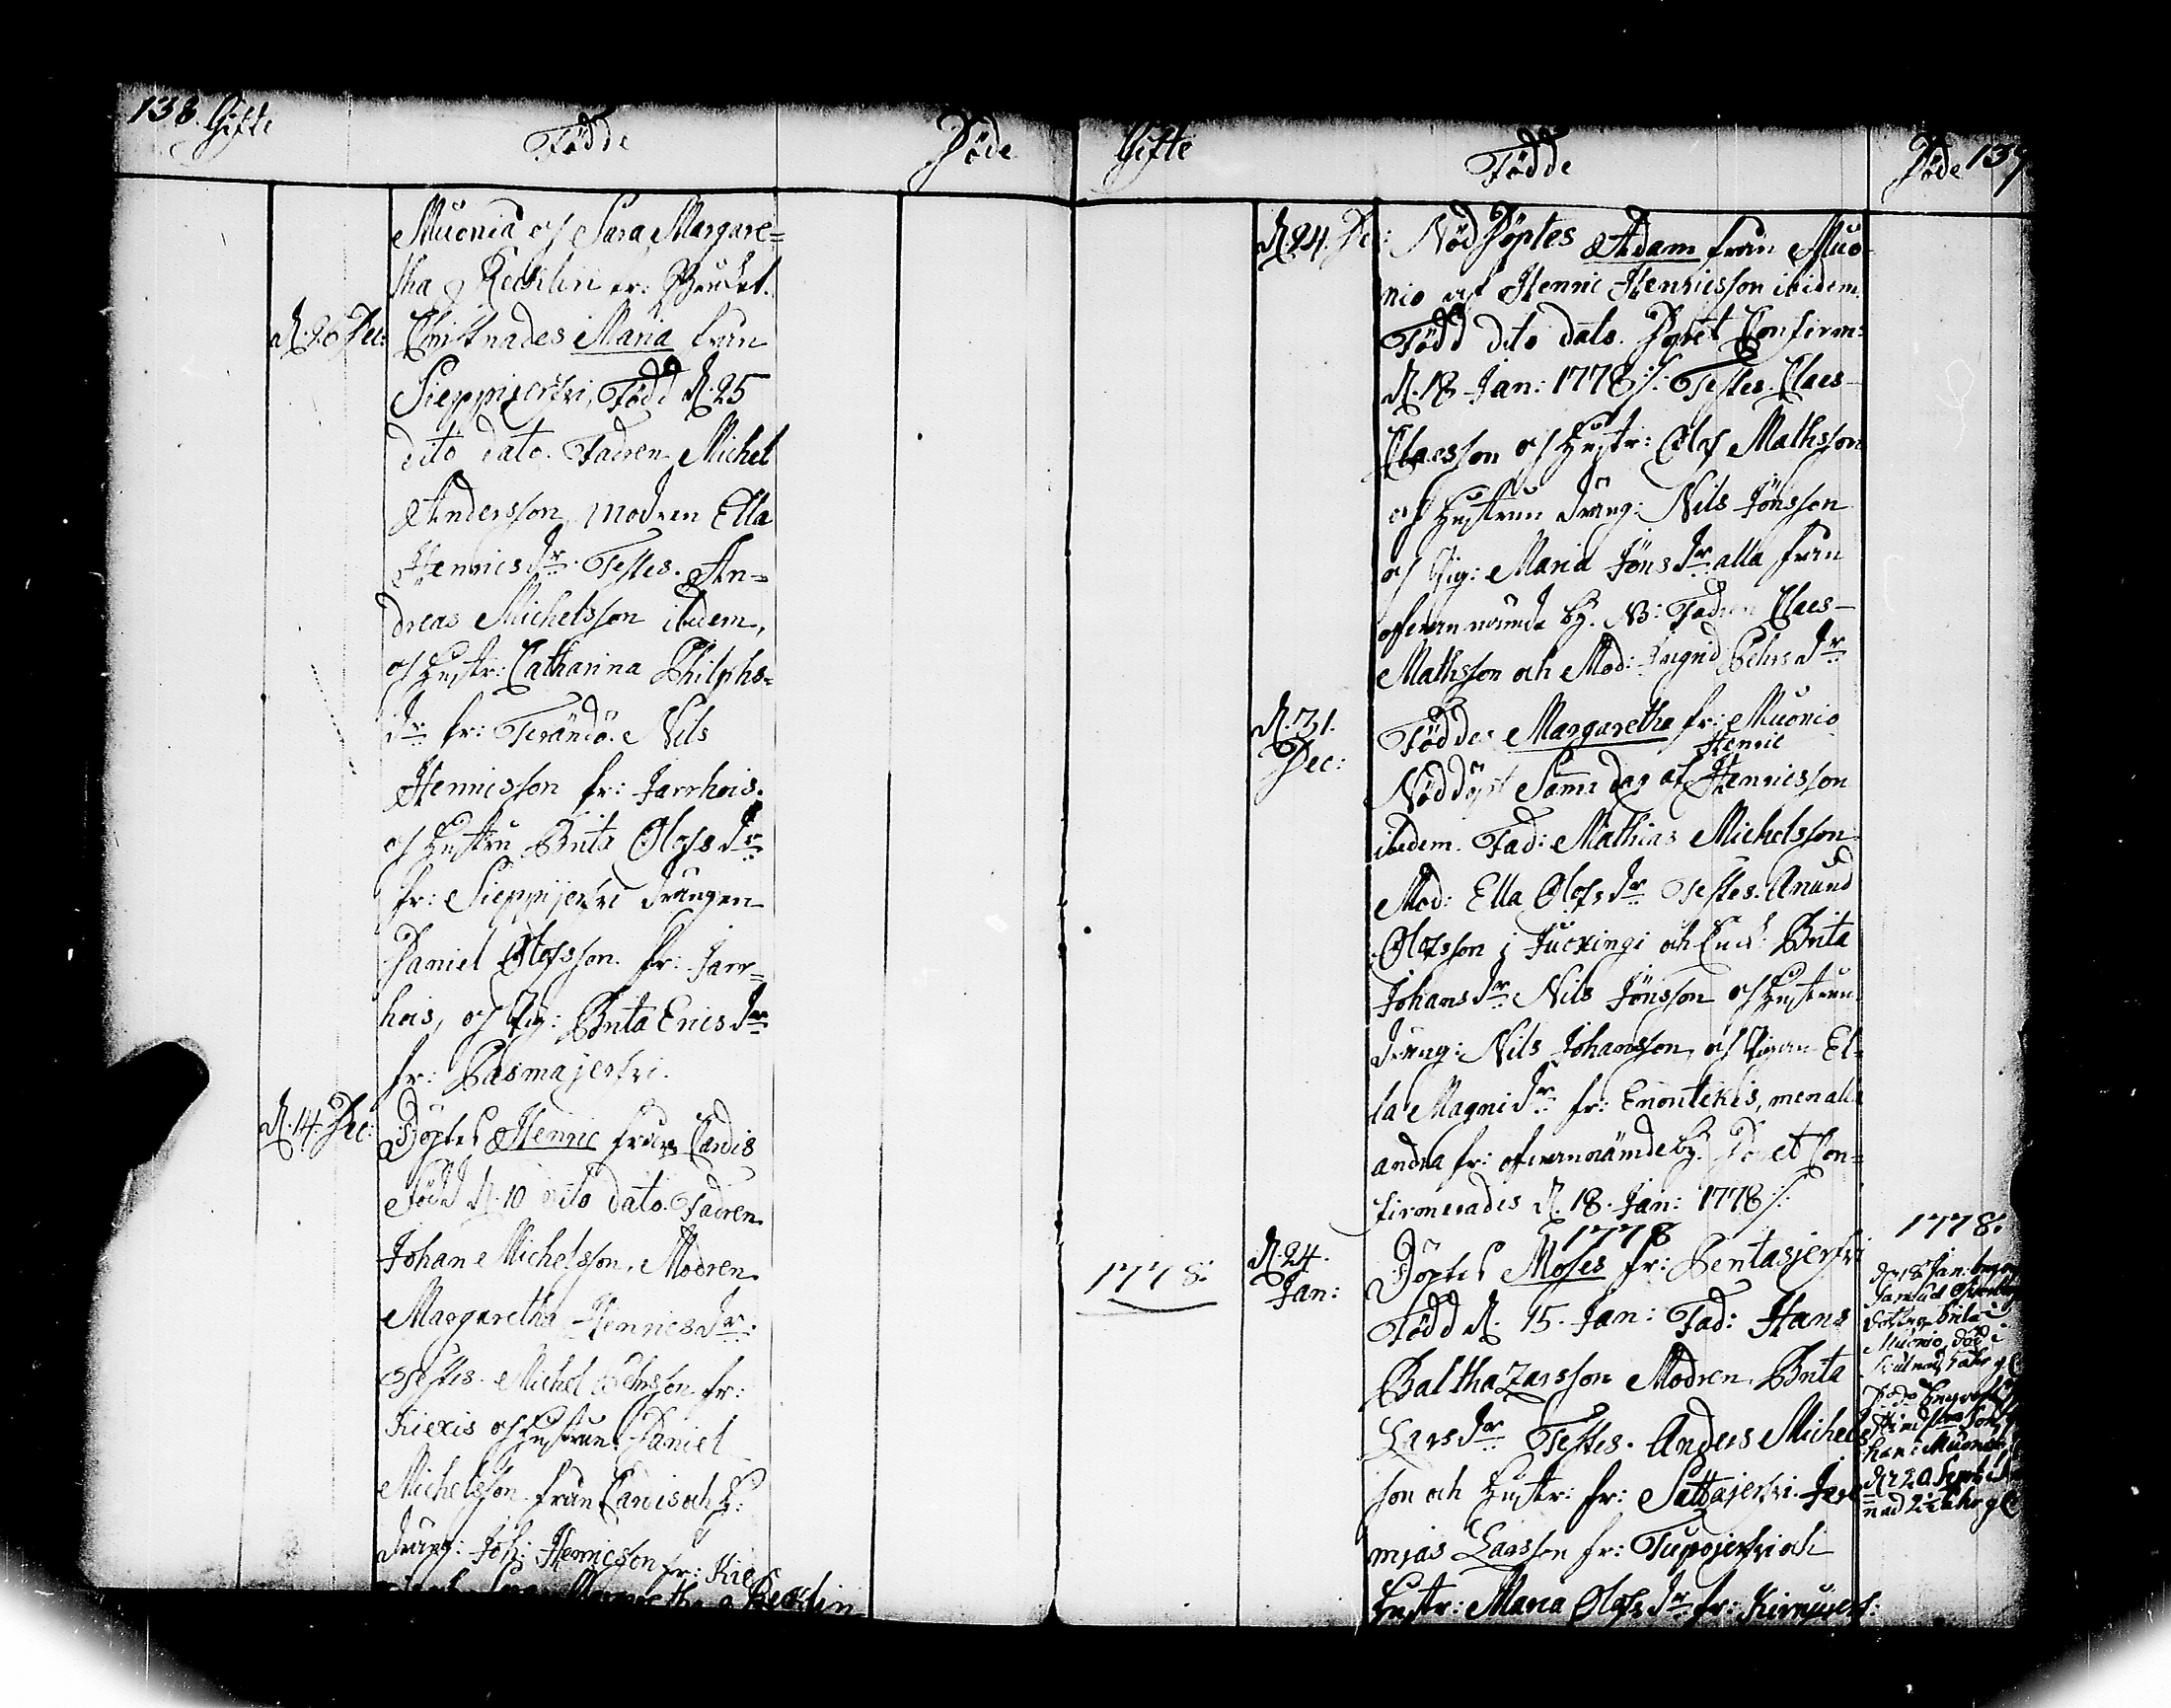 138. Gifte
Födde
Döde
Muonio och Sara Margare=
tha Rechlin fr: Bruket.
D. 26 Dec:
Christnades Maria från
Sieppijerfvi, Född D. 25
dito dato. Fadren Michel
Andersson, modren Ella
Henricsdr: Testes. An=
dreas Michelsson ibidem,
och Hustr: Catharina Philphs=
dr fr: Terändö. Nils
Henricsson fr: Jarrhois.
och Hustru Brita Olofsdr
fr: Sieppijerfvi Drängen
Daniel Olofsson. fr: Jarr=
hois, och Pig: Brita Ericsdr
fr: Pasmajerfvi.
D. 14. Dec:
Döptes Henric från Cardis
Född D. 10 dito dato. Fadren
Johan Michelsson. Modren
Margaretha Henricsdr:
Testes. Michel Pehrsson fr:
Kiexis och Hustrun. Daniel
Michelsson från Cardis och H:
Dräng: Joh: Henricsson fr: Kie
Margretha Rechlin
Gifte
Födde
Döde 139
D. 24. Dec:
NödDöptes Adam från Muo
nio af Henric Henricsson ibidem.
Född dito dato. Dopet Confirm:
D. 18 Jan: 1778 ./. Testes. Claes
Claesson och Hustr: Olof Mathsson
och Hustrun Dräng: Nils Jönsson
och Pig: Maria Jönsdr alla från
ofvannämnde by. NB: Fadren Claes
Mathsson och Mod: Ingrid Pehrsdr
D. 31.
Dec:
Föddes Margaretha fr: Muonio
Henric
Nöddöpt Samma dag af Henricsson
ibidem. Fad: Mathias Michelsson
Mod: Ella Olofsdr Testes. Anund
Olofsson i Juoxingi och Hust: Brita
Johansdr Nils Jönsson och Hustrun
Dräng: Nils Johansson, och Pigan El=
la Magnidr fr: Enontekis, men alla
andra fr: ofvannämde by. Dopet Con=
firmerades D. 18. Jan: 1778 ./.
1778
1778.
D. 24.
Jan:
Döptes Moses fr: Pentasjerfvi
Född D. 15. Jan: Fad: Hans
Balthazarsson Modren. Brita
Larsdr Testes. Anders Michels
son och Hustr: fr: Sattajerfvi. Jere
mias Larsson fr: Tupojerfvi och
Hustr: Maria Olofsdr fr: Kirnujerf:
1778.
D. 18 Jan:
Brita i
Muonio, död i
han i Muonio
D. 20. Sept: